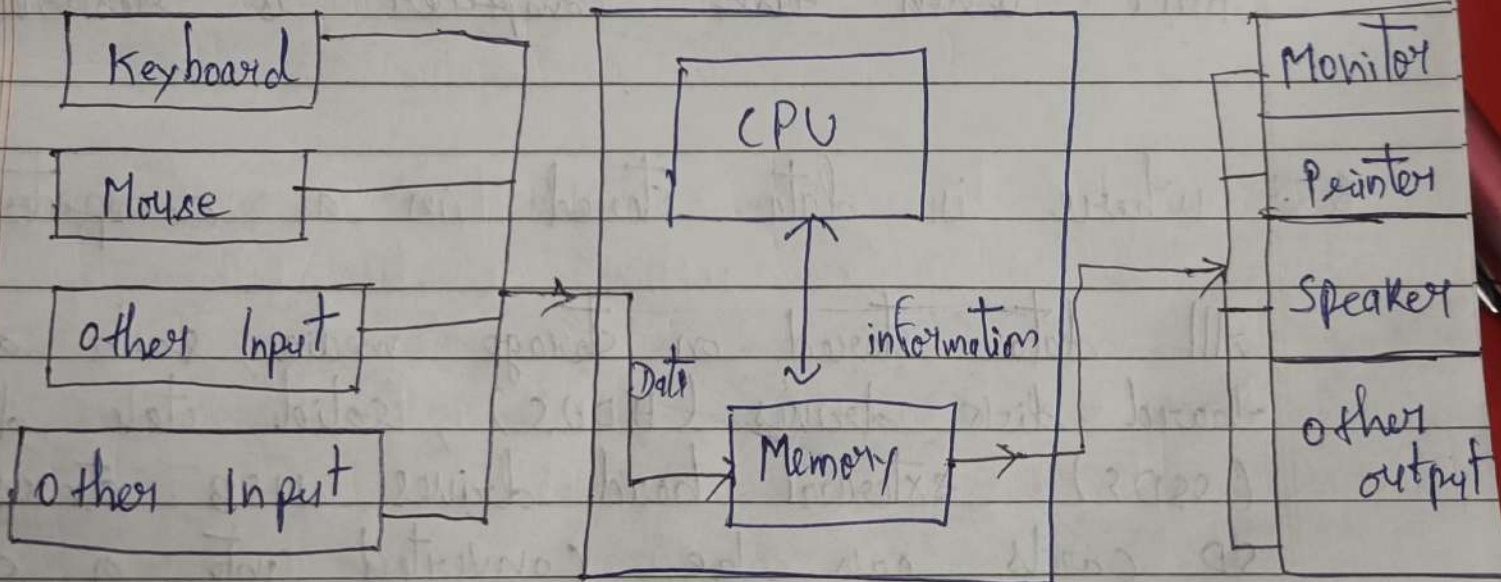 Keyboard
Mouse
Other Input
Other Input
CPU
information
Data
Memory
Monitor
Printer
Speaker
Other
output